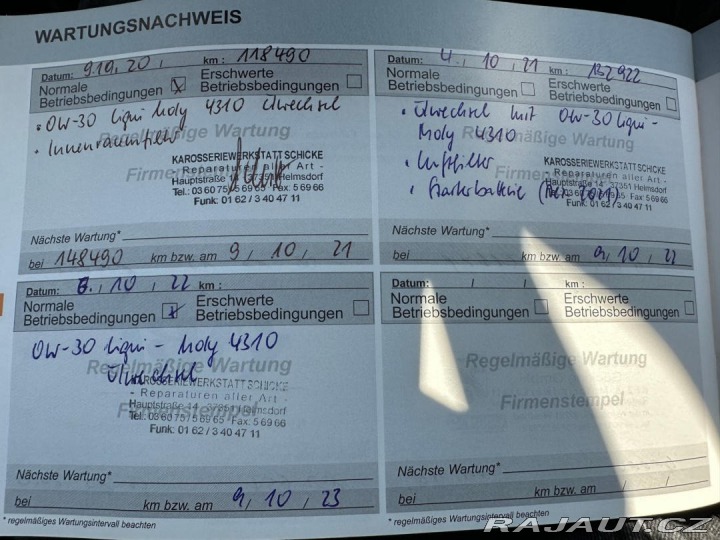 WARTUNGSNACHWEIS
Datum: 9.10.20, km: 118490
Normale Betriebsbedingungen Erschwerte Betriebsbedingungen
• 0W-30 Liqui Moly 4310 Ölwechsel
Regelmäßige Wartung
• Innenraumfilter
Firmenstempel
KAROSSERIEWERKSTATT SCHICKE
- Reparaturen aller Art -
Hauptstraße 14 · 37351 Helmsdorf
Tel.: 03 60 75 / 5 69 65 Fax: 5 69 66
Funk: 01 62 / 3 40 47 11
Nächste Wartung*
bei 148490 km bzw. am 9, 10, 21
Datum: 4., 10, 21 km: 132922
Normale Betriebsbedingungen Erschwerte Betriebsbedingungen
• Ölwechsel mit 0W-30 Liqui-
Moly 4310
Regelmäßige Wartung
• Luftfilter
KAROSSERIEWERKSTATT SCHICKE
- Reparaturen aller Art -
Hauptstraße 14 · 37351 Helmsdorf
• Starterbatterie
Tel.: 03 60 75 / 5 69 65 Fax: 5 69 66
Funk: 01 62 / 3 40 47 11
Nächste Wartung*
bei km bzw. am 9, 10, 22
Datum: , 10, 22 km:
Normale Betriebsbedingungen Erschwerte Betriebsbedingungen
0W-30 Liqui-Moly 4310
Regelmäßige Wartung
Ölwechsel
KAROSSERIEWERKSTATT SCHICKE
- Reparaturen aller Art -
Firmenstempel
Hauptstraße 14 · 37351 Helmsdorf
Tel.: 03 60 75 / 5 69 65 Fax: 5 69 66
Funk: 01 62 / 3 40 47 11
Nächste Wartung*
bei km bzw. am 9, 10, 23
* regelmäßiges Wartungsintervall beachten
Datum: / / km:
Normale Betriebsbedingungen Erschwerte Betriebsbedingungen
Regelmäßige Wartung
Firmenstempel
Nächste Wartung*
bei km bzw. am / /
* regelmäßiges Wartungsintervall beachten
RAJAUT.CZ